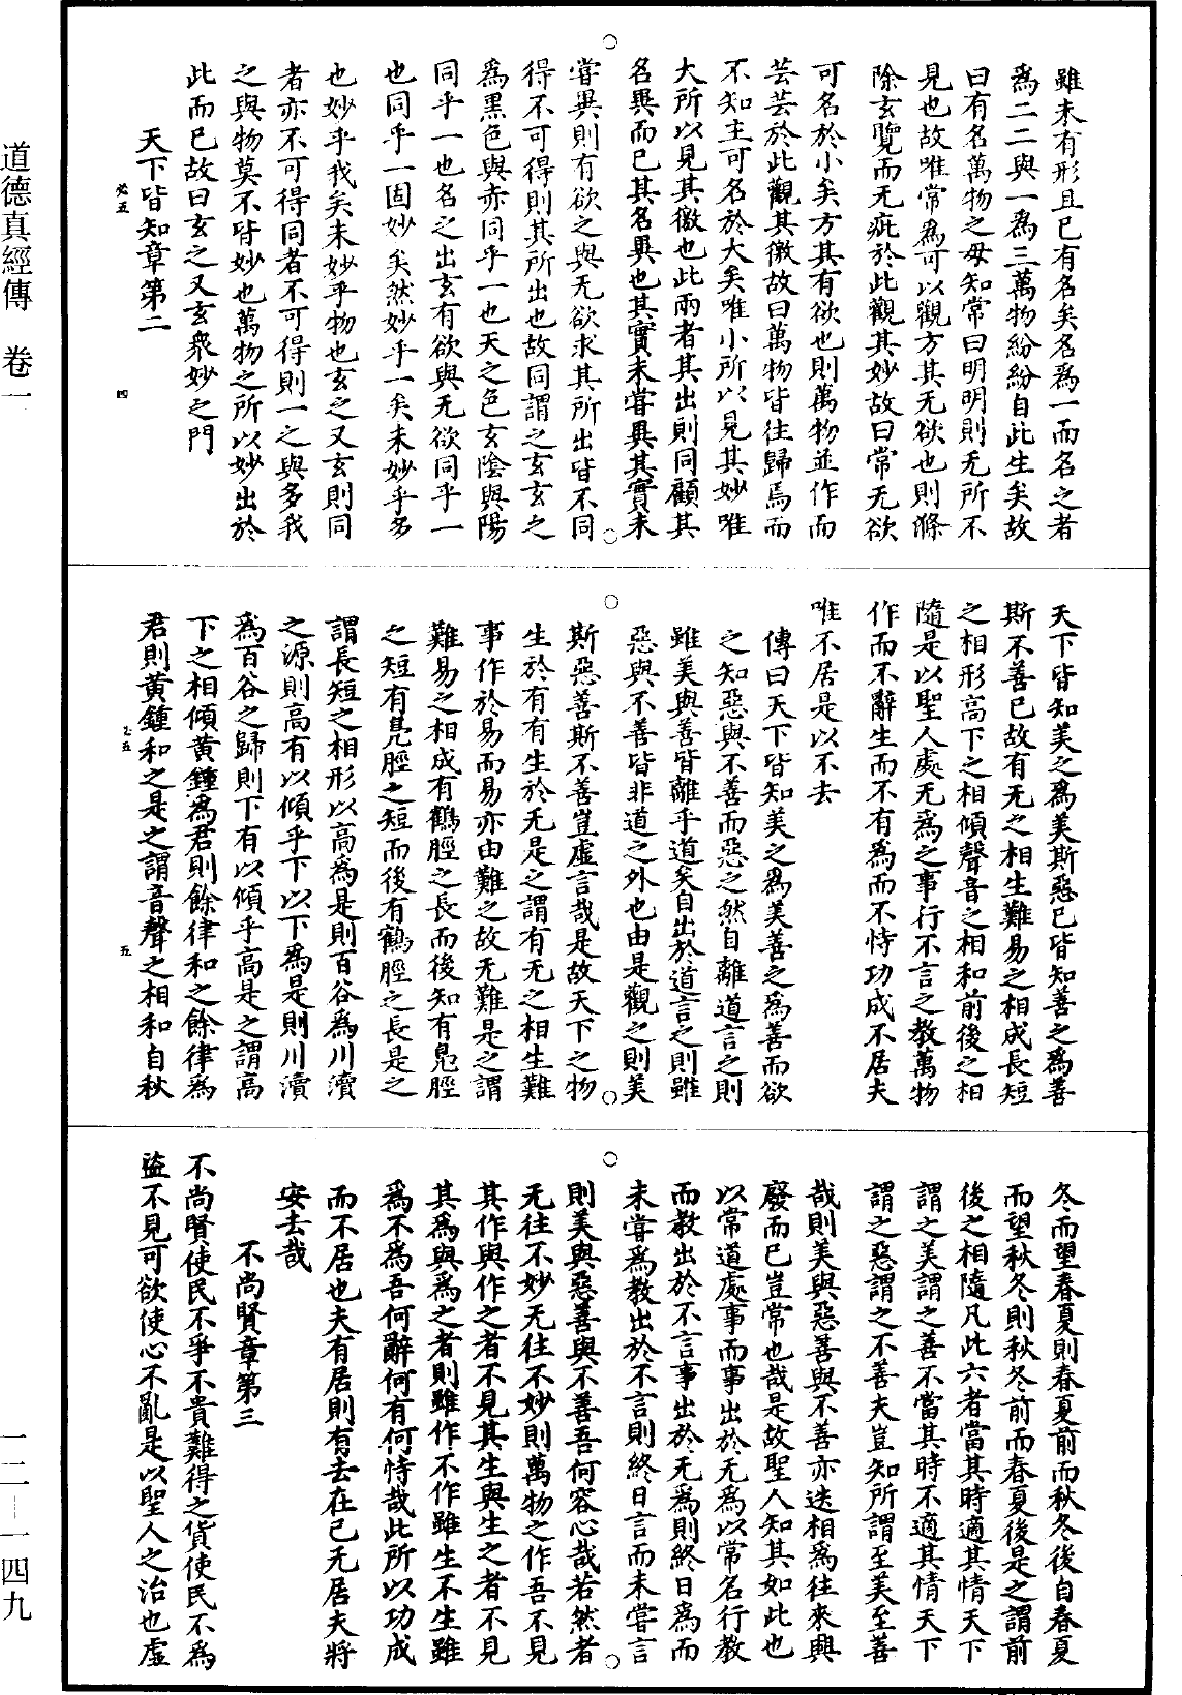 雖未有形且已有名矣名爲一而名之者
爲二二與一爲三萬物紛紛自此生矣故
曰有名萬物之母知常曰明明則无所不
見也故唯常為可以觀方其无欲也則滌
除玄覽而无疵於此觀其妙故曰常无欲
可名於小矣方其有欲也則萬物並作而
芸芸於此觀其徼故曰萬物皆往歸焉而
不知主可名於大矣唯小所以見其妙唯
大所以見其徼也此兩者其出則同顧其
名異而已其名異也其實未甞異其實未
甞異則有欲之與无欲求其所出皆不同
得不可得則其所出也故同謂之玄玄之
爲黑色與赤同乎一也天之色玄陰與陽
同乎一也名之出玄有欲與无欲同乎一
也同乎一固妙矣然妙乎一矣未妙乎多
也妙乎我矣未妙乎物也玄之又玄則同
者亦不可得同者不可得則一之與多我
之與物莫不皆妙也萬物之所以妙出於
此而已故曰玄之又玄衆妙之門
天下皆知章第二
四
天下皆知美之爲美斯惡已皆知善之爲善
斯不善已故有无之相生難易之相成長短
之相形高下之相傾聲音之相和前後之相
隨是以聖人處无爲之事行不言之教萬物
作而不辭生而不有爲而不恃功成不居夫
唯不居是以不去
傳曰天下皆知美之爲美善之爲善而欲
之知惡與不善而惡之然自離道言之則
雖美與善皆離乎道矣自出於道言之則雖
惡與不善皆非道之外也由是觀之則美
斯惡善斯不善豈虛言哉是故天下之物
生於有有生於无是之謂有无之相生難
事作於易而易亦由難之故无難是之謂
難易之相成有鶴脛之長而後知有鳧脛
之短有鳧脛之短而後有鶴脛之長是之
謂長短之相形以高爲是則百谷爲川瀆
之源則高有以傾乎下以下爲是則川瀆
爲百谷之歸則下有以傾乎高是之謂高
下之相傾黃鍾爲君則餘律和之餘律爲
君則黃鍾和之是之謂音聲之相和自秋
五
冬而望春夏則春夏前而秋冬後自春夏
而望秋冬則秋冬前而春夏後是之謂前
後之相隨凡此六者當其時適其情天下
謂之美謂之善不當其時不適其情天下
謂之惡謂之不善夫豈知所謂至美至善
哉則美與惡善與不善亦迭相爲往來興
廢而已豈常也哉是故聖人知其如此也
以常道處事而事出於无爲以常名行教
而教出於不言事出於无爲則終日爲而
未甞爲教出於不言則終日言而未甞言
則美與惡善與不善吾何容心哉若然者
无往不妙无往不妙則萬物之作吾不見
其作與作之者不見其生與生之者不見
其爲與爲之者則雖作不作雖生不生雖
爲不爲吾何辭何有何恃哉此所以功成
而不居也夫有居則有去在己无居夫將
安去哉
不尚賢章第三
不尚賢使民不爭不貴難得之貨使民不爲
盜不見可欲使心不亂是以聖人之治也虛
道德真經傳　卷一
一二—一四九